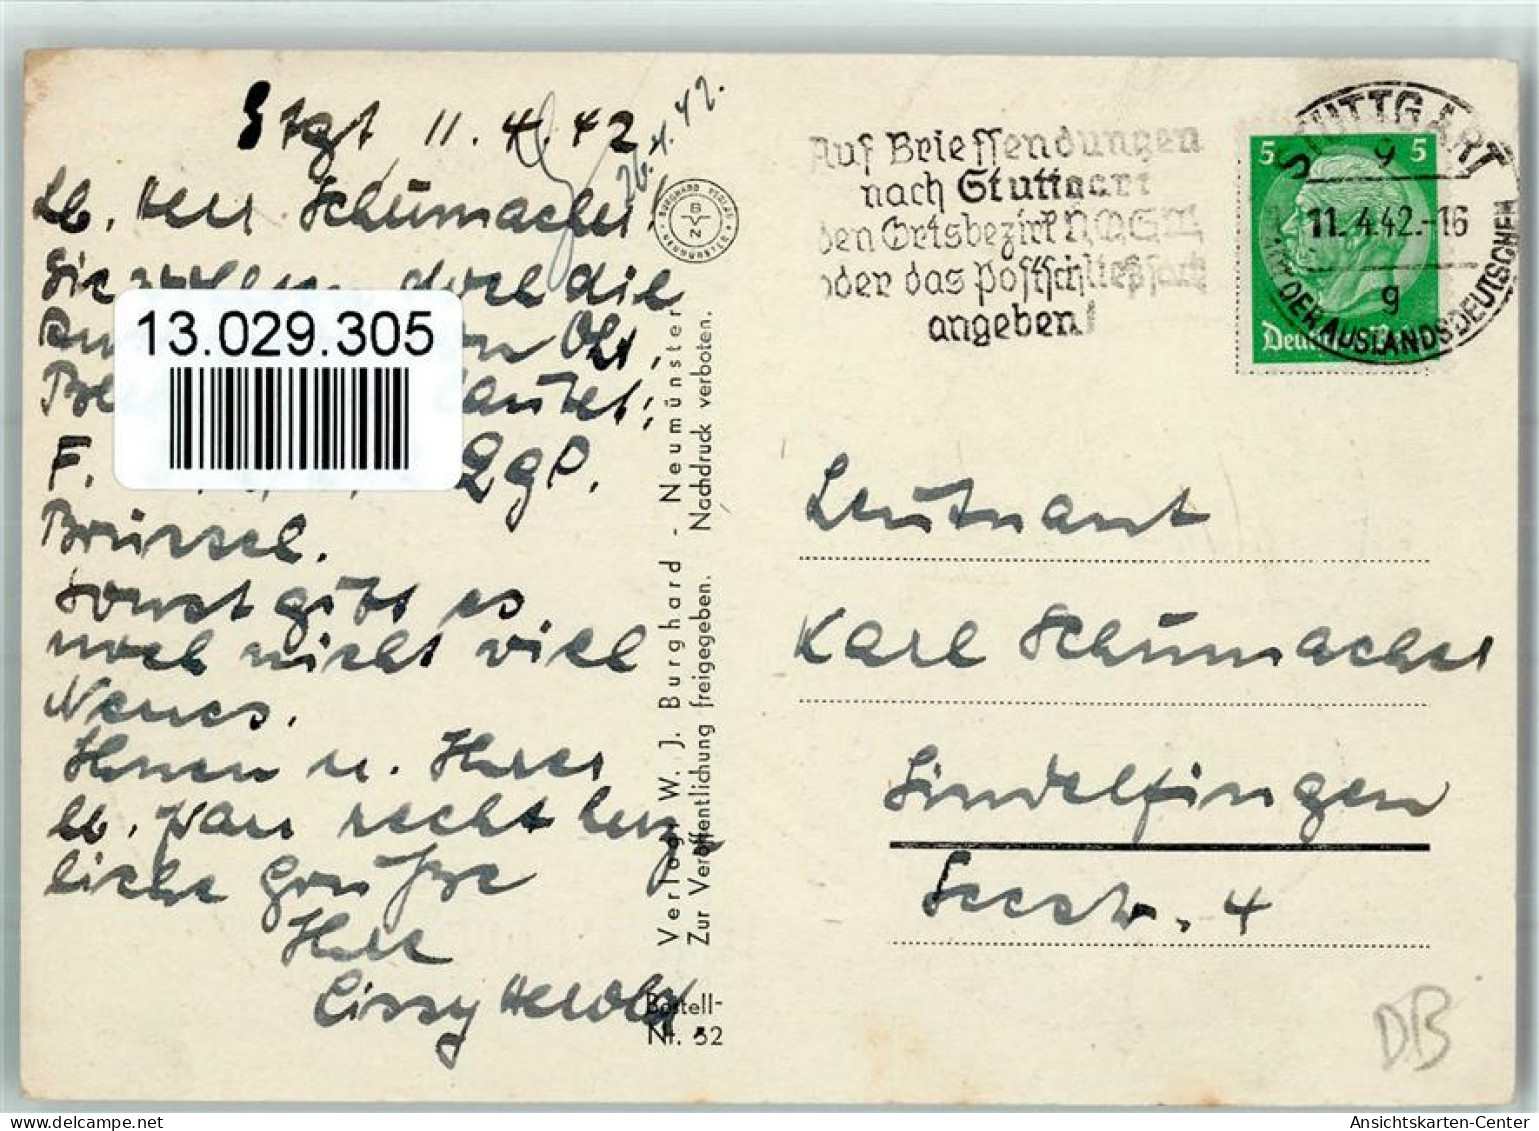 Stgt 11.4.42
26.4.42.
Lb. Herr Schumacher!
Sie wollten doch die
von Obt.
lautet:
F.
LgP.
Brüssel.
Sonst gibt es
noch nicht viel
Neues.
Ihnen u. Ihrer
lb. Frau recht herz
liche Grüße
Ihre
Cissy Herold
13.029.305
BURGHARD VERLAG
BVN
NEUMÜNSTER
Verlag: W. J. Burghard - Neumünster
Zur Veröffentlichung freigegeben. Nachdruck verboten.
Bestell-
Nr. 52
Auf Briefsendungen
nach Stuttgart
den Ortsbezirk N,O,S,W
oder das Postschließfach
angeben!
5 5
STUTTGART
9
11.4.42.-16
9
DER AUSLANDSDEUTSCHEN
Leutnant
Karl Schumacher
Sindelfingen
Seestr. 4
DB
Ansichtskarten-Center